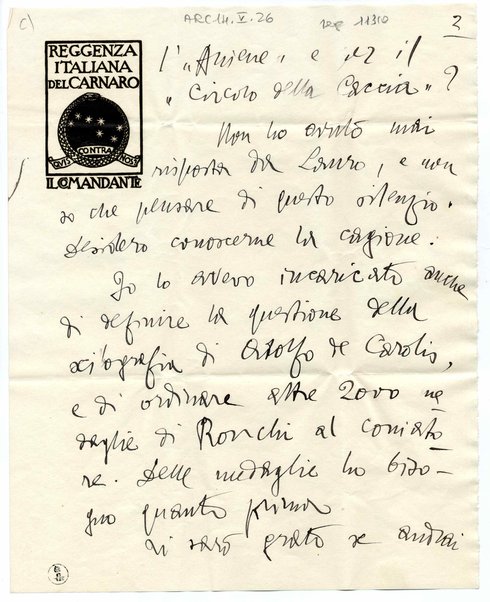 c)
ARC 14. V. 26
reg 11310
2
REGGENZA
ITALIANA
DEL CARNARO
QUIS CONTRA NOS
IL COMANDANTE
l' "Aniene" e per il
"Circolo della Caccia"?
Non ho avuto mai
risposta da Lauro, e non
so che pensare di questo silenzio.
Desidero conoscerne la cagione.
Io lo avevo incaricato anche
di definire la questione della
xilografia di Adolfo de Carolis,
e di ordinare altre 2000 me
daglie di Ronchi al coniato
re. Delle medaglie ho biso-
gno quanto prima
Ti sarò grato se andrai